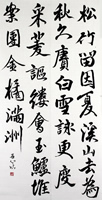 松竹留因夏溪山去為
秋久賡白雪詠更度
采菱謳縷會玉鱸堆
案團金橘滿洲